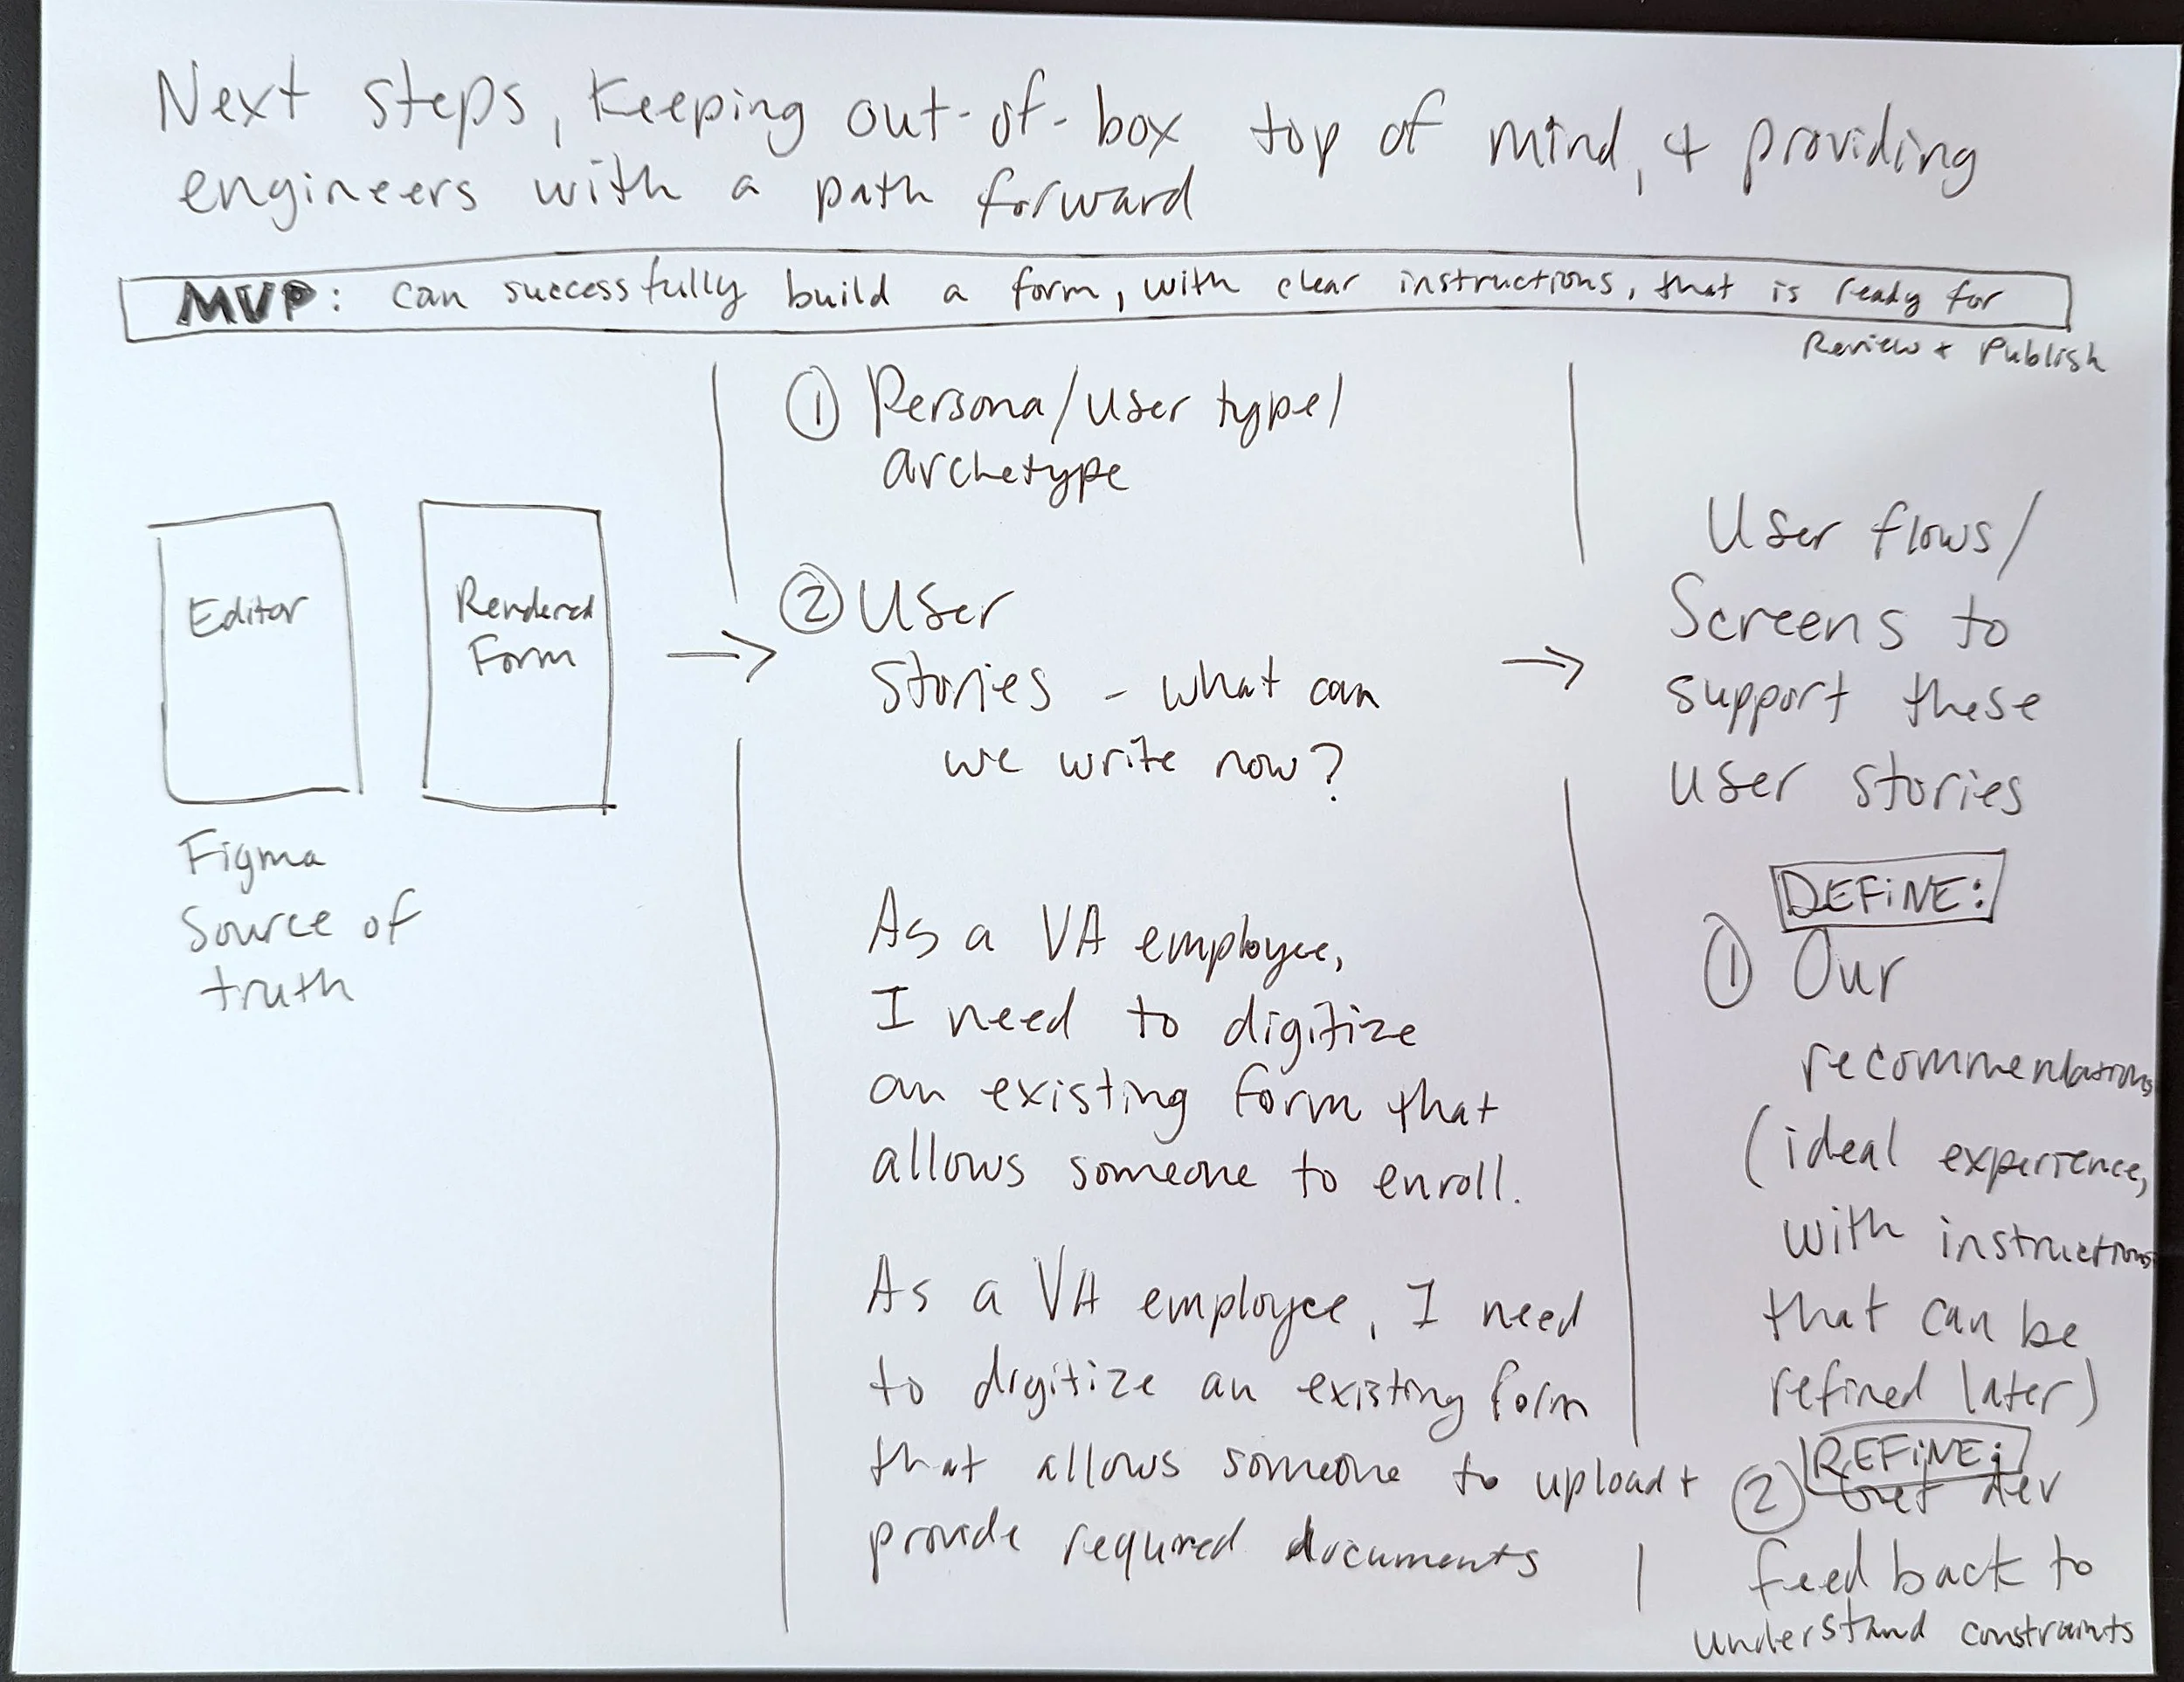 Next steps, Keeping out-of-box top of mind, + providing
engineers with a path forward
MVP: can successfully build a form, with clear instructions, that is ready for
Review + Publish
Editor
Rendered
Form
Figma
Source of
truth
① Persona/user type/
archetype
② User
Stories - what can
we write now?
As a VA employee,
I need to digitize
an existing form that
allows someone to enroll.
As a VA employee, I need
to digitize an existing form
that allows someone to upload +
provide required documents
User flows/
Screens to
support these
user stories
DEFINE:
① Our
recommendations
(ideal experience,
with instructions
that can be
refined later)
REFINE:
② Get dev
feedback to
understand constraints